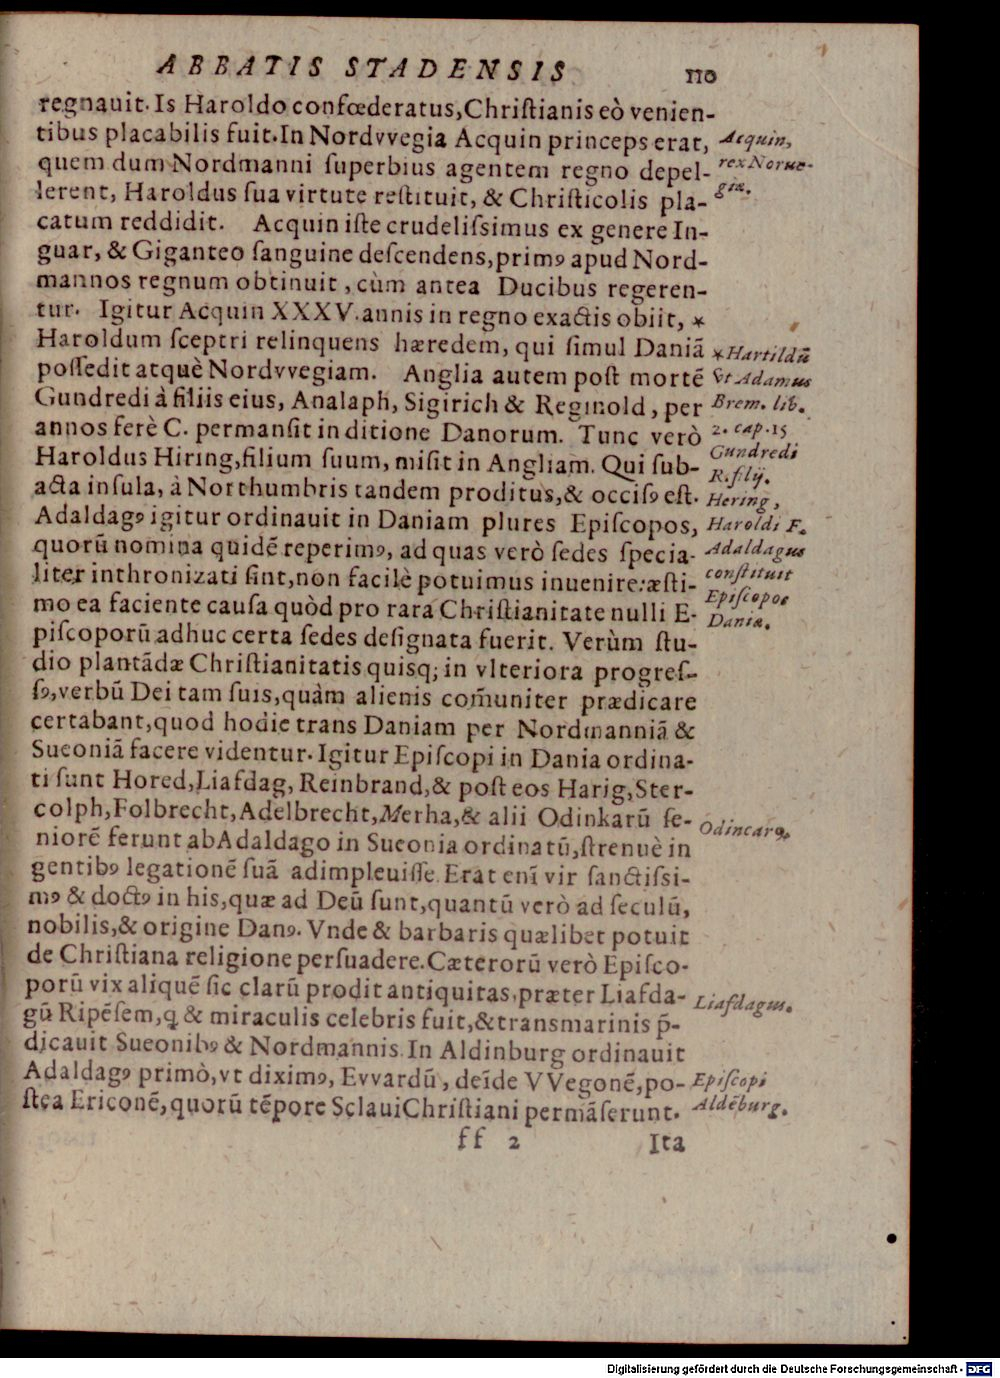 ABBATIS STADENSIS 110
regnauit. Is Haroldo confœderatus, Chriſtianis eò venien-
tibus placabilis fuit. In Nordvvegia Acquin princeps erat,
quem dum Nordmanni ſuperbius agentem regno depel-
lerent, Haroldus ſua virtute reſtituit, & Chriſticolis pla-
catum reddidit. Acquin iſte crudeliſsimus ex genere In-
guar, & Giganteo ſanguine deſcendens, primꝰ apud Nord-
mannos regnum obtinuit, cùm antea Ducibus regeren-
tur. Igitur Acquin XXXV. annis in regno exactis obiit, *
Haroldum ſceptri relinquens hæredem, qui ſimul Daniã
poſſedit atquè Nordvvegiam. Anglia autem poſt mortẽ
Gundredi à filiis eius, Analaph, Sigirich & Reginold, per
annos ferè C. permanſit in ditione Danorum. Tunc verò
Haroldus Hiring, filium ſuum, miſit in Angliam. Qui ſub-
acta inſula, à Northumbris tandem proditus, & occiſꝰ eſt.
Adaldagꝰ igitur ordinauit in Daniam plures Epiſcopos,
quorũ nomina quidẽ reperimꝰ, ad quas verò ſedes ſpecia-
liter inthronizati ſint, non facilè potuimus inuenire: æſti-
mo ea faciente cauſa quòd pro rara Chriſtianitate nulli E-
piſcoporũ adhuc certa ſedes deſignata fuerit. Verùm ſtu-
dio plantãdæ Chriſtianitatis quisq; in vlteriora progreſ-
ſꝰ, verbũ Dei tam ſuis, quàm alienis com̃uniter prædicare
certabant, quod hodie trans Daniam per Nordmanniã &
Sueoniã facere videntur. Igitur Epiſcopi in Dania ordina-
ti ſunt Hored, Liafdag, Reinbrand, & poſt eos Harig, Ster-
colph, Folbrecht, Adelbrecht, Merha, & alii Odinkarũ ſe-
niorẽ ferunt ab Adaldago in Sueonia ordinatũ, ſtrenuè in
gentibꝰ legationẽ ſuã adimpleuiſſe. Erat enĩ vir ſanctiſsi-
mꝰ & doctꝰ in his, quæ ad Deũ ſunt, quantũ verò ad ſeculũ,
nobilis, & origine Danꝰ. Vnde & barbaris quælibet potuit
de Chriſtiana religione perſuadere. Cæterorũ verò Epiſco-
porũ vix aliquẽ ſic clarũ prodit antiquitas, præter Liafda-
gũ Ripẽſem, q̃ & miraculis celebris fuit, & transmarinis p̃-
dicauit Sueonibꝰ & Nordmannis. In Aldinburg ordinauit
Adaldagꝰ primò, vt diximꝰ, Evvardũ, deĩde VVegonẽ, po-
ſtea Ericonẽ, quorũ tẽpore Sclaui Chriſtiani permãſerunt.
ff 2 Ita
Acquin,
rex Norue-
gia.
*Hartildũ
vt Adamus
Brem. lib.
2. cap. 15
Gundredi
R. filij.
Hering,
Haroldi F.
Adaldagus
conſtituit
Epiſcopos
Dania.
Odincarꝰ.
Liafdagus.
Epiſcopi
Aldẽburg.
Digitalisierung gefördert durch die Deutsche Forschungsgemeinschaft - DFG